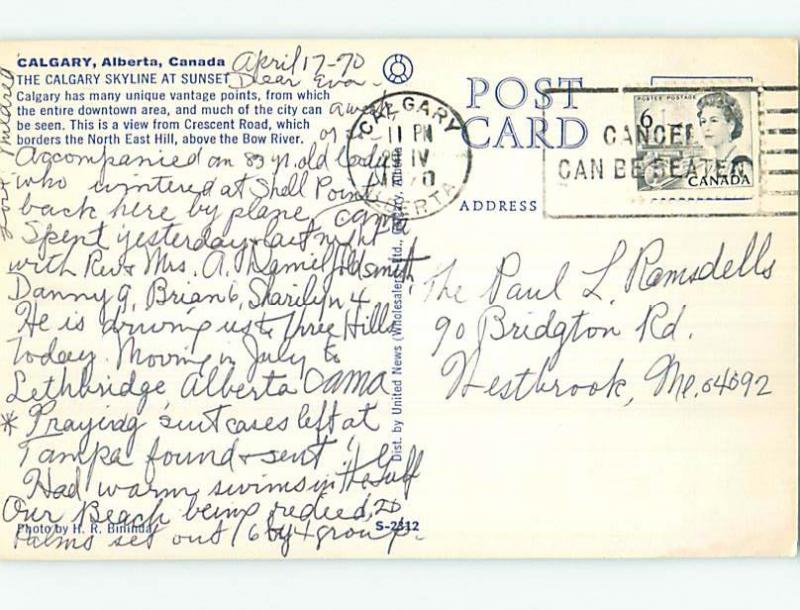 CALGARY, Alberta, Canada April 17-70
THE CALGARY SKYLINE AT SUNSET Dear Eva-
Calgary has many unique vantage points, from which
the entire downtown area, and much of the city can a week
be seen. This is a view from Crescent Road, which
borders the North East Hill, above the Bow River.
Accompanied an 83 yr. old lady
who wintered at Shell Point
back here by plane, came
Spent yesterday & last night
with Rev & Mrs. A. Daniel Goldsmith,
Danny 9, Brian 6, Sharilyn 4.
He is driving us to Three Hills
today. Moving in July to
Lethbridge Alberta
* Praying suitcases left at
Tampa found & sent!
Had warm swims in the Gulf
Our Beach being redeed, 20
Photo by H. R. Binindal
palms set out 16 by 4 group.
S-2312
Love, Mildred
POST
CARD
ADDRESS
CALGARY
11 PM
IV
ALBERTA
CANCER
CAN BE BEATEN
POSTES POSTAGE
6
CANADA
The Paul L. Ramsdells
90 Bridgton Rd.
Westbrook, Me. 04092
Dist. by United News (Wholesalers) Ltd., Calgary, Alberta